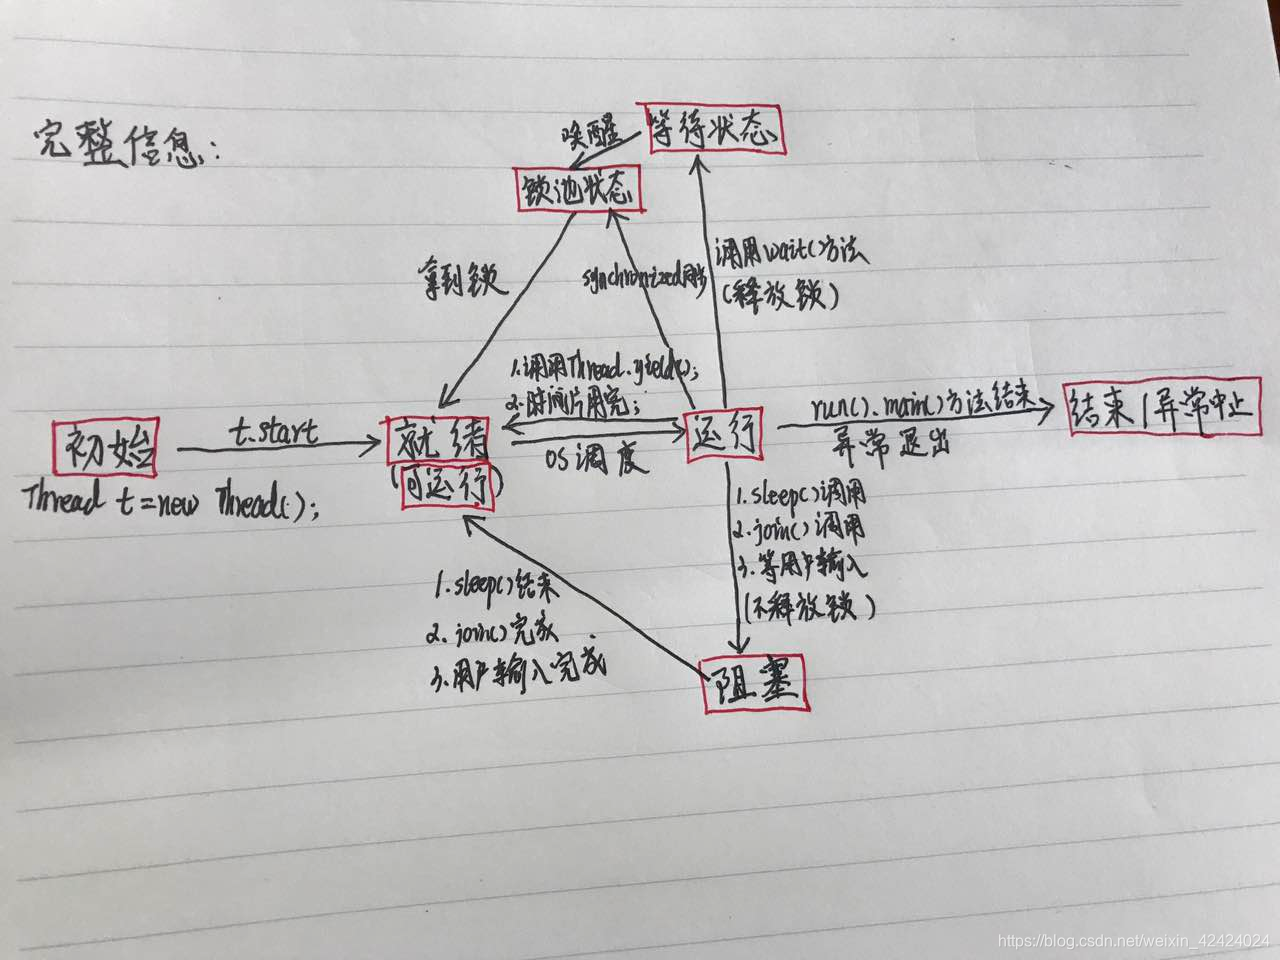 完整信息:
唤醒
等待状态
锁池状态
拿到锁
synchronized同步
调用wait()方法
(释放锁)
1.调用Thread.yield();
2.时间片用完;
初始
t.start
就绪
(可运行)
OS调度
运行
run().main()方法结束
异常退出
结束/异常中止
Thread t=new Thread();
1.sleep()调用
2.join()调用
3.等用户输入
(不释放锁)
1.sleep()结束
2.join()完成
3.用户输入完成
阻塞
https://blog.csdn.net/weixin_42424024